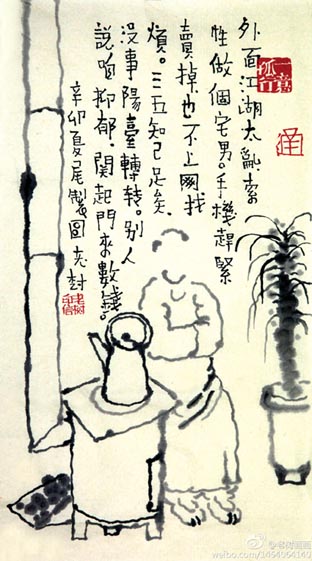 外面江湖太亂索
性做個宅男。手機趕緊
賣掉也不上网找
煩。三五知己足矣.
沒事陽臺轉转。别人
說咱抑郁.関起門來數錢。
辛卯夏尾製圖充封
一意孤行
@老树画画